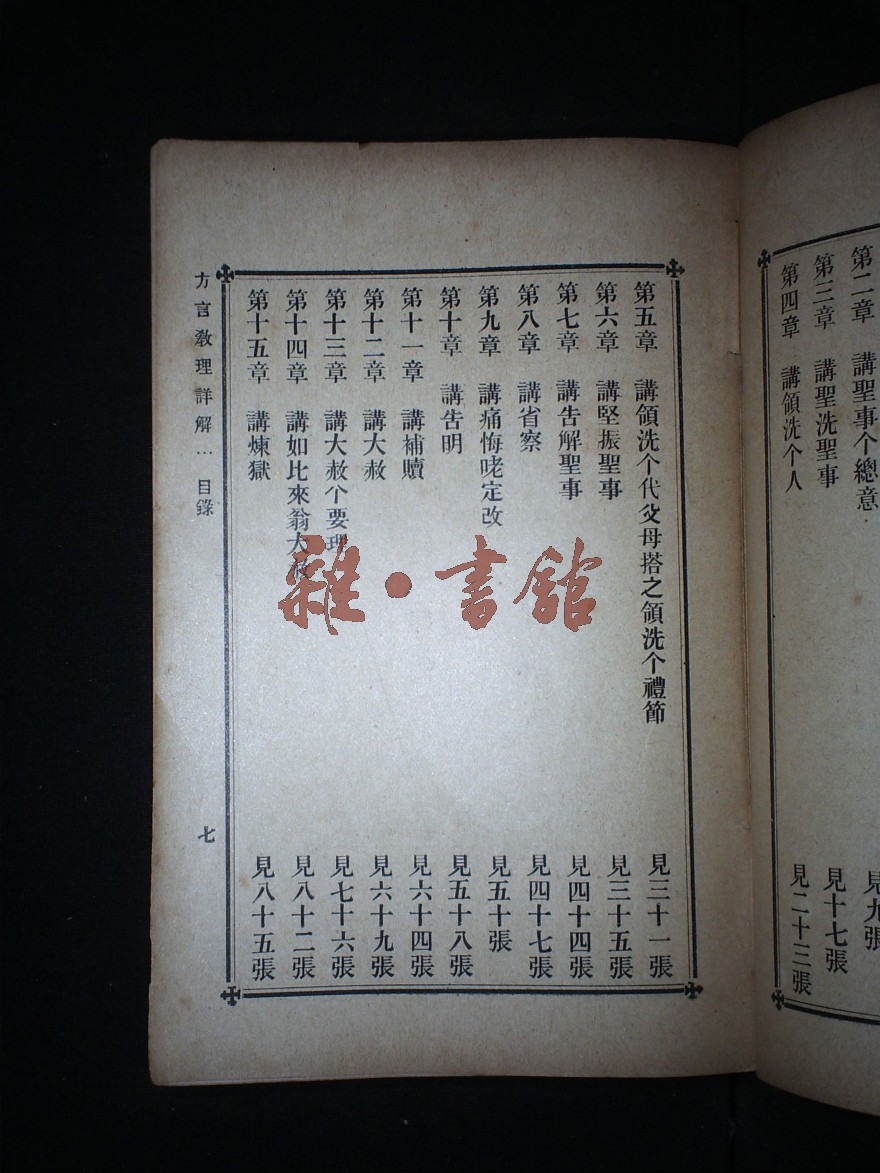 第二章 講聖事个總意 見九張
第三章 講聖洗聖事 見十七張
第四章 講領洗个人 見二十三張
第五章 講領洗个代父母搭之領洗个禮節 見三十一張
第六章 講堅振聖事 見三十五張
第七章 講告解聖事 見四十四張
第八章 講省察 見四十七張
第九章 講痛悔咾定改 見五十張
第十章 講告明 見五十八張
第十一章 講補贖 見六十四張
第十二章 講大赦 見六十九張
第十三章 講大赦个要理 見七十六張
第十四章 講如比來翁大赦 見八十二張
第十五章 講煉獄 見八十五張
方言教理詳解… 目錄 七
雜·書館